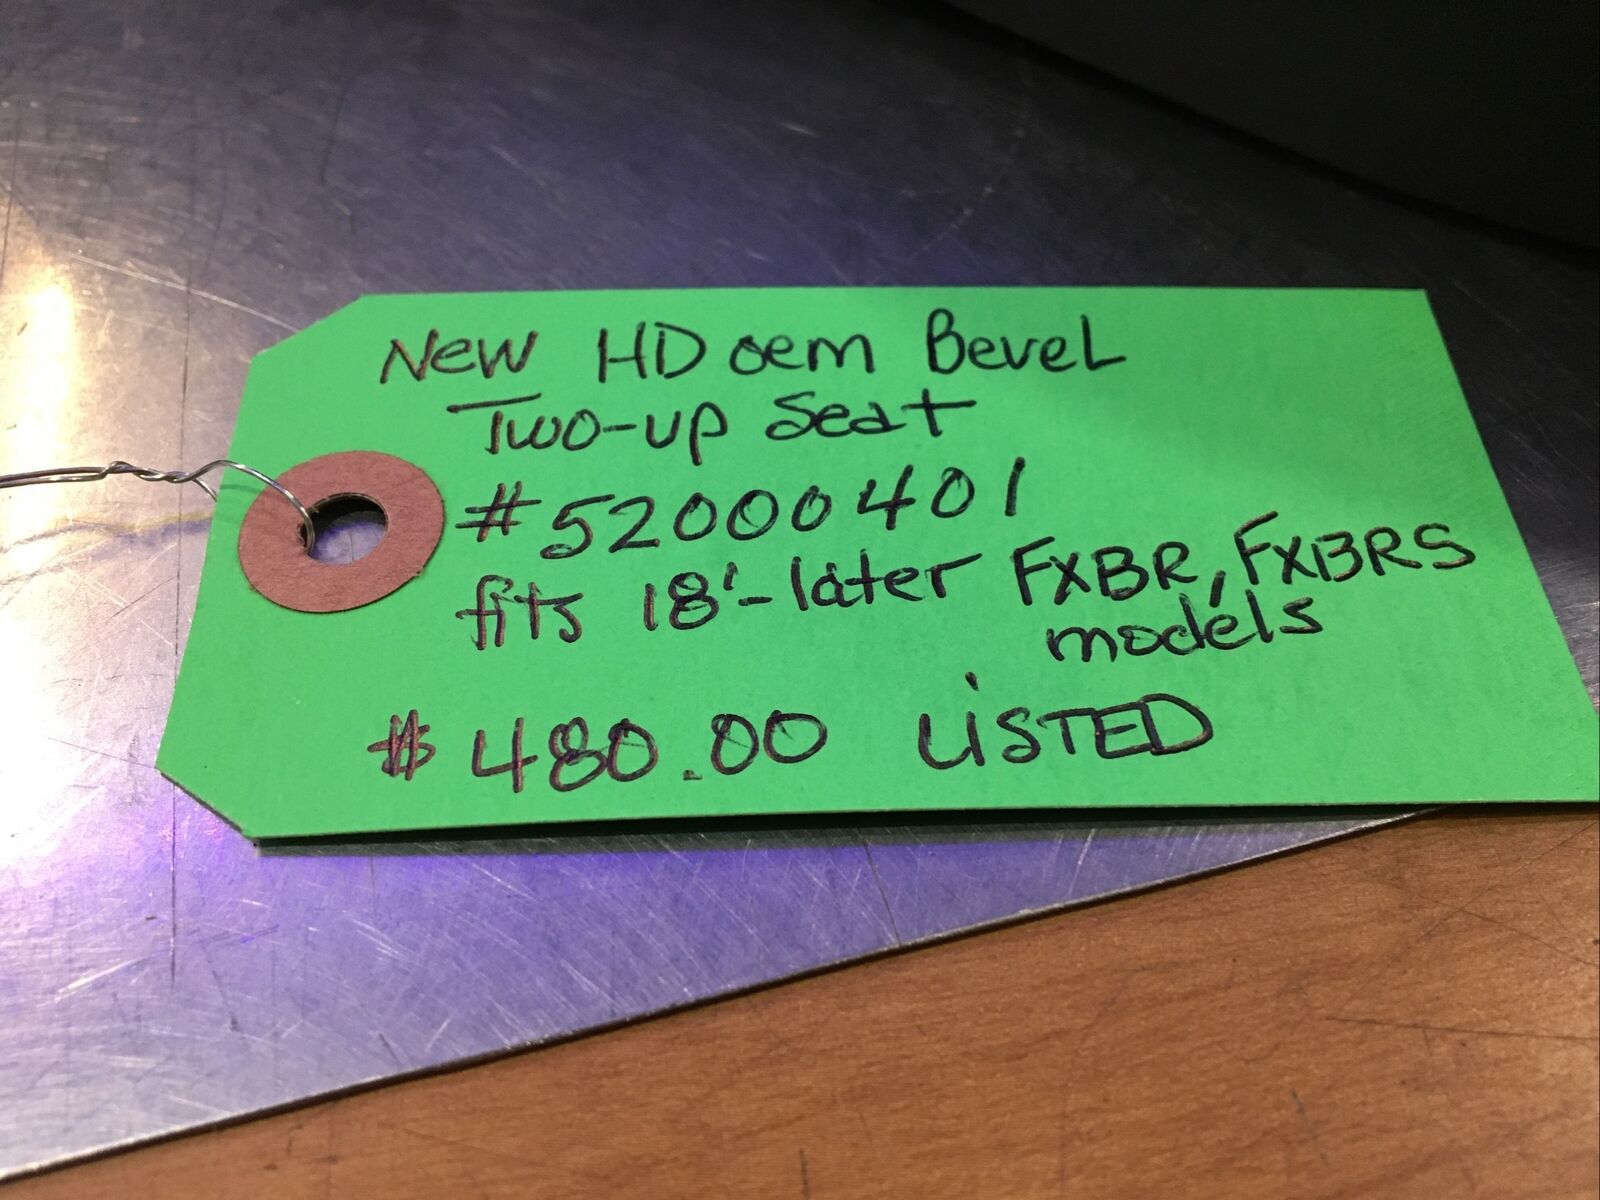 New HD oem Bevel
Two-up Seat
#52000401
fits 18'-later FXBR, FXBRS
models
$480.00 LiSTED